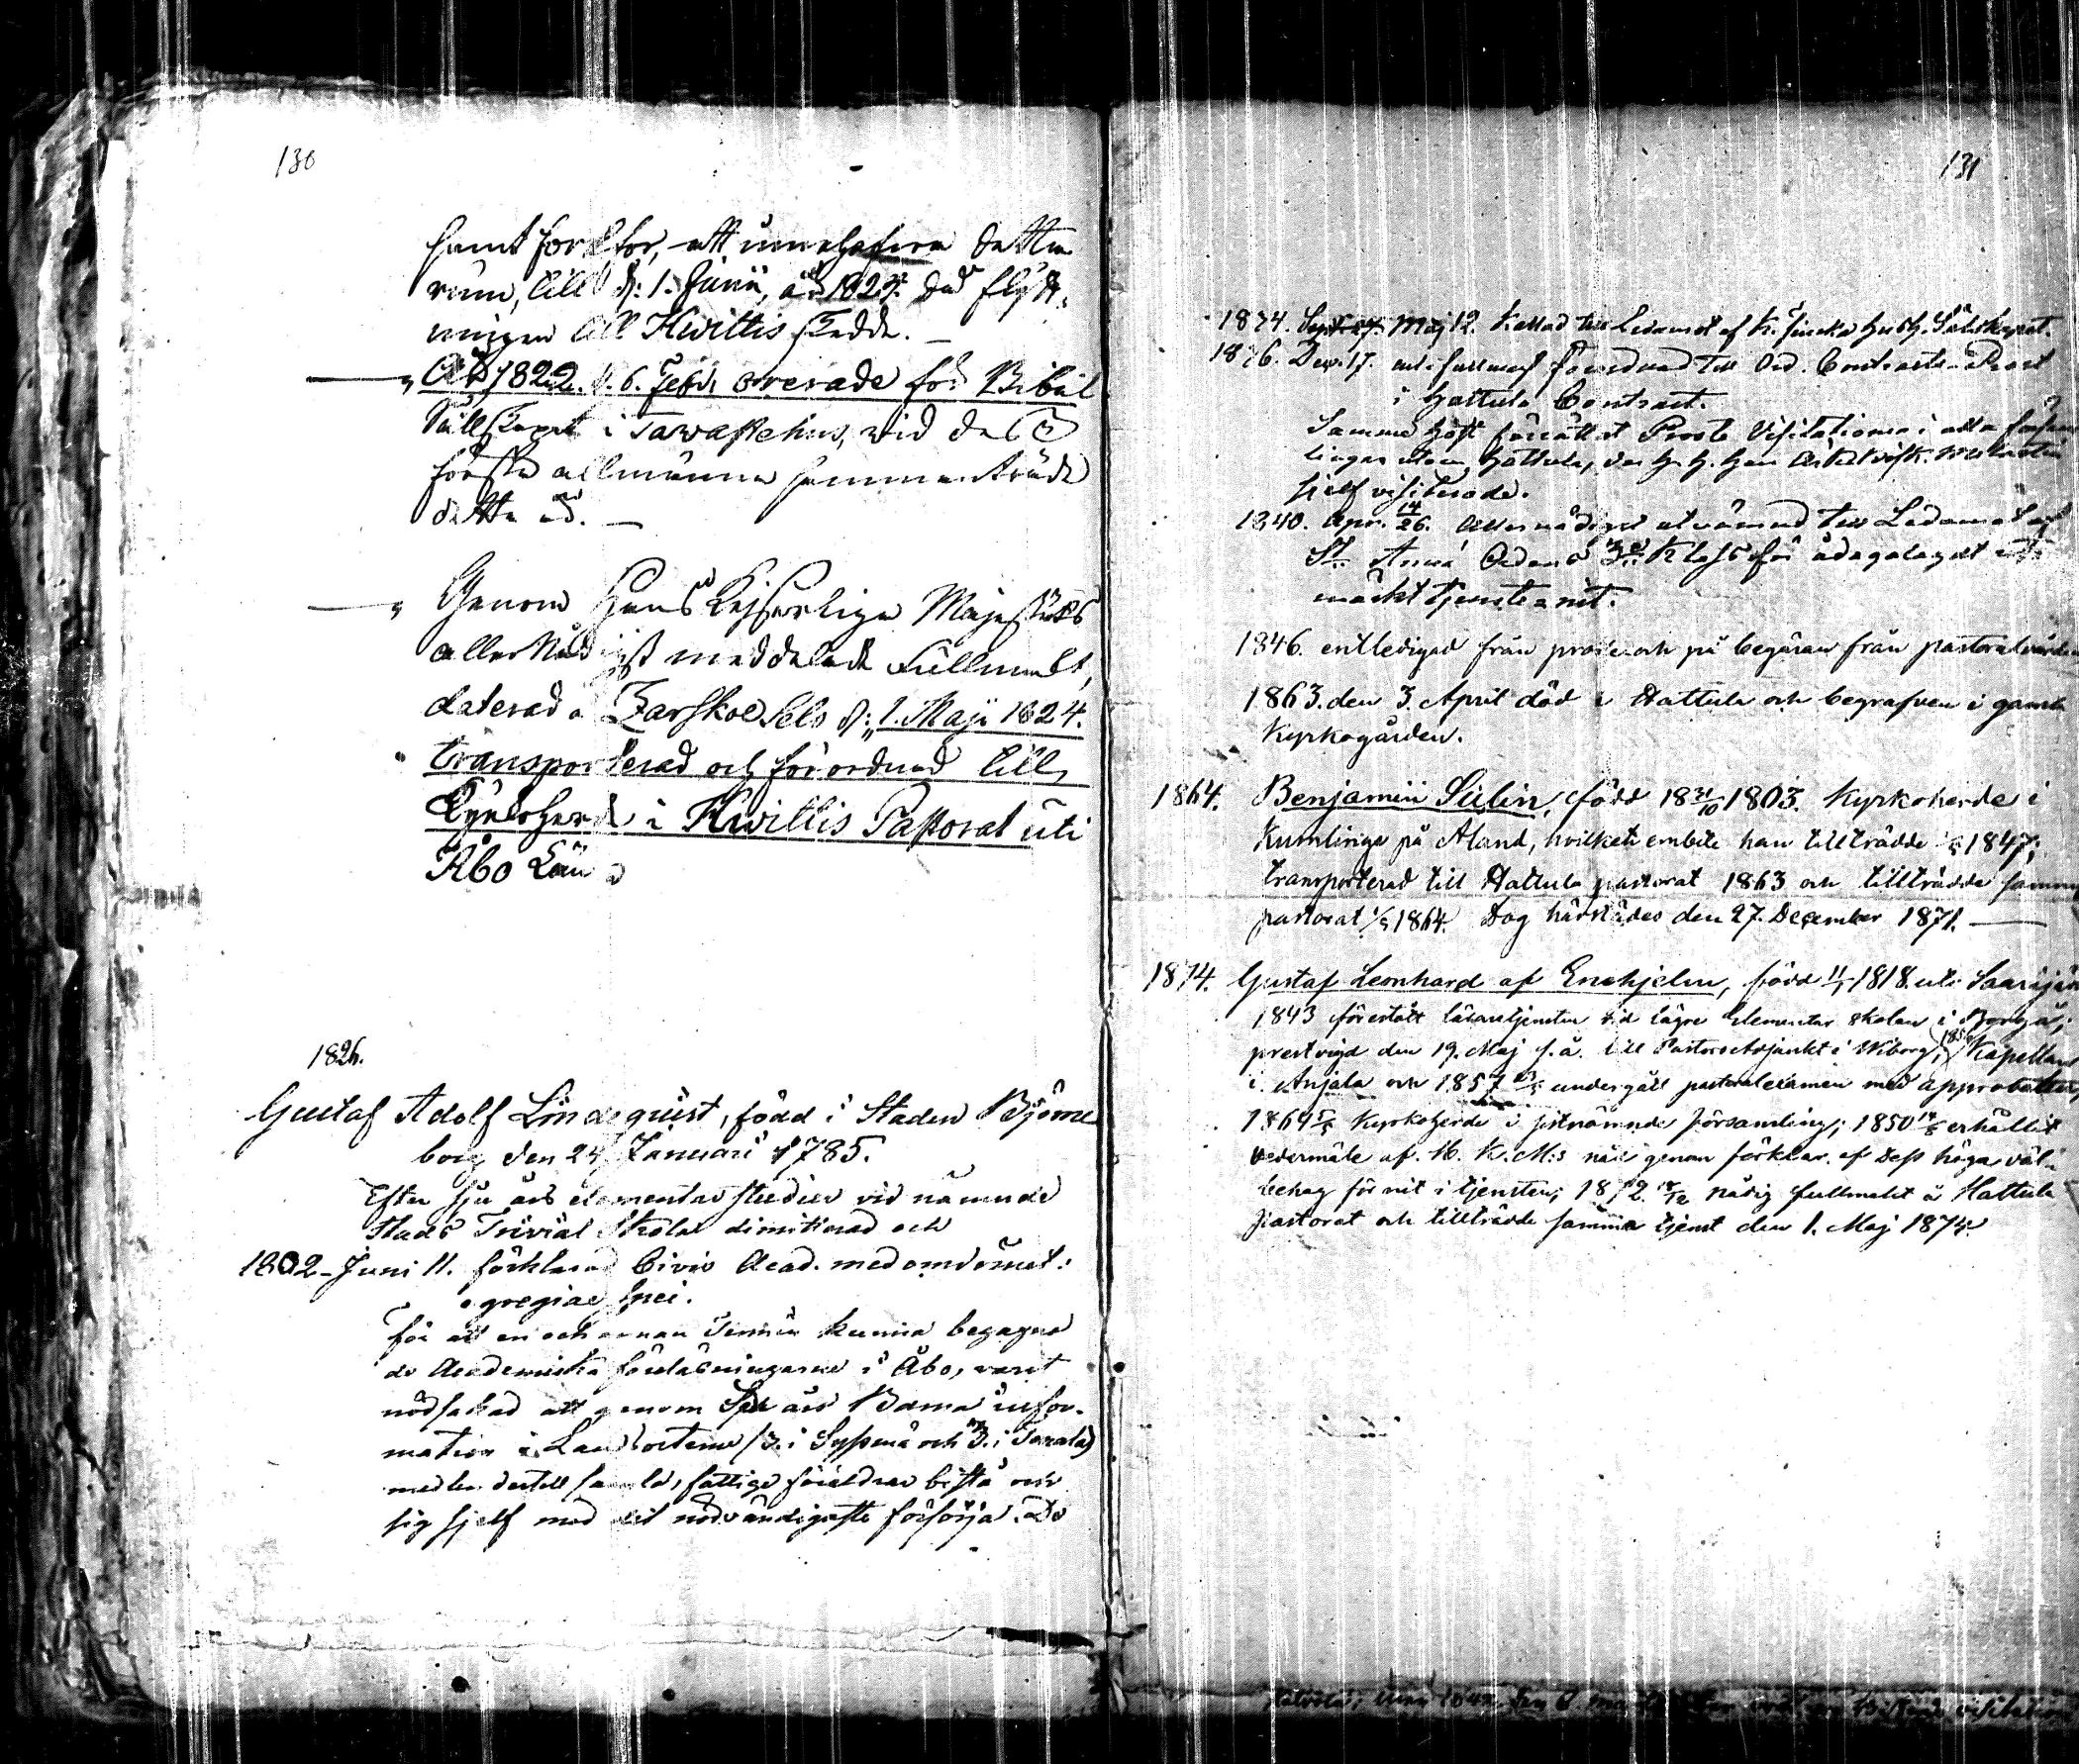 130
samt fortfor, att innehafva detta
rum, till d: 1. Junii, år 1824. då flytt-
ningen till Hwittis skedde. —
År 1822. d. 6. Febr. orerade för Bibel
Sällskapet i Tawastehus, wid dess
första allmänna sammanträde
detta år. —
Genom Hans Kejserliga Majestäts
allernådigst meddelade Fullmakt,
daterad Zarskoe Selo d: 1. Maji 1824.
transporterad och förordnad till
Kyrkoherde i Hwittis Pastorat uti
Åbo Län
1826.
Gustaf Adolf Lindequist, född i Staden Björne
borg den 24 Januari 1785.
Efter sju års elementar studier vid nämnde
Stads Trivial Skola dimitterad och
1802 - Juni 11. förklarad Civis Acad. med omdömet:
egregiae spei.
för att en och annan Termin kunna begagna
de Academiska föreläsningarne i Åbo, varit
nödsakad att genom års Barna infor-
mation i Landsorterne (3. i Sysmä och 3. i
medlen dertill samla, fattiga föräldrar bistå och
sig sjelf med det nödvändigaste försörja. De
131
1834. Maj 12. Kallad till Ledamot af K. Finska Hush. Sällskapet.
1836. Dec. 17. med fullmagt förordnad till Ord. Contracts-Prost
i Hattula Contract.
Samma höst förrättat Prosts Visitationer i alla församl
lingar utom Hattula, der
sjelf visiterade.
1840. Apr. 14/26. Allernådigst utnämnd till Ledamot af
St. Annæ Ordens 3. Klass för ådagalagdt ut-
märkt tjenstenit.
1846. entledigad från prosteri och på begäran från pastoralvården
1863. den 3. April död i Hattula och begrafven i gamla
Kyrkogården.
1864. Benjamin Sulin, född 18 31/10 1803. Kyrkoherde i
Kumlinge på Åland, hvilket embete han tillträdde 1/5 1847;
transporterad till Hattula pastorat 1863 och tillträdde samma
pastorat 1/5 1864. Dog härstädes den 27. December 1871. —
1874. Gustaf Leonhard af Enehjelm, född 1818. uti Saarijär
1843 förestått läraretjensten vid lägre Elementar skolan i Borgå;
prestvigd den 19. Maj s. å. till Pastorsadjunkt i Wiborg; Kapellan
i Anjala och 1857 undergått pastoralexamen med approbatur,
1864 Kyrkoherde i sistnämnde församling; 1850 erhållit
vedermäle af H. K. M:s nåd genom förklar. af Dess höga väl-
behag för nit i tjensten; 1872. nådig fullmakt å Hattula
Pastorat och tillträdde samma tjenst den 1. Maj 1874.